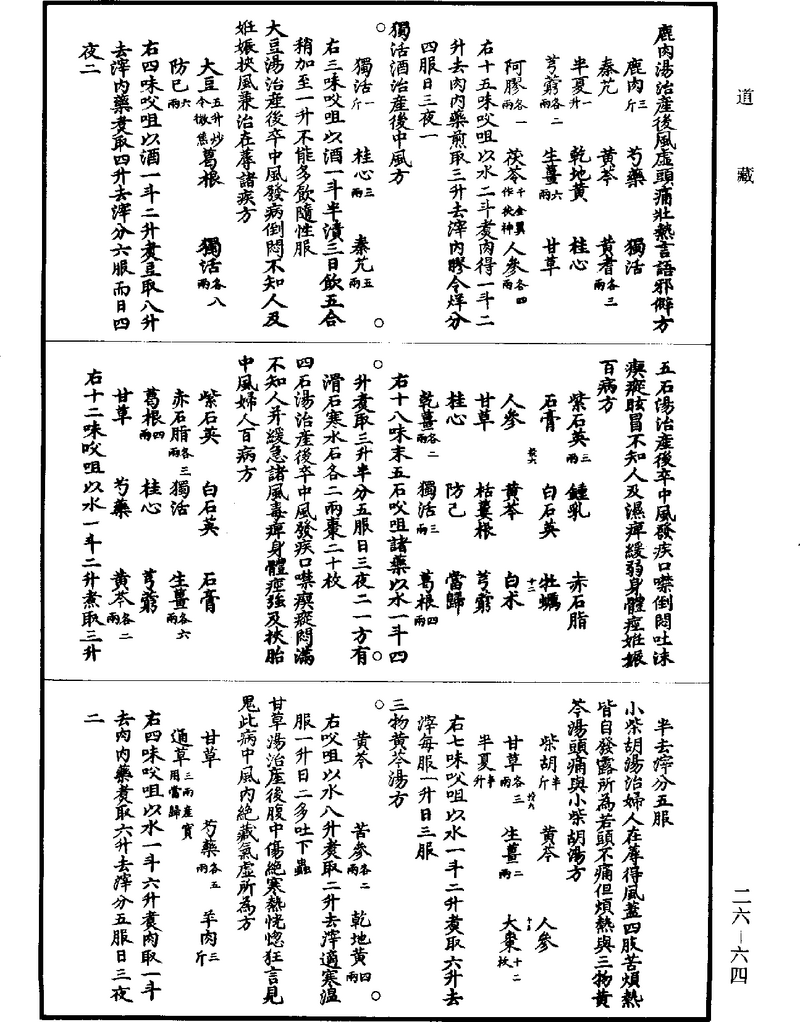 道藏
鹿肉湯治產後風虛頭痛壯熱言語邪僻方
鹿肉三斤 芍藥 獨活
秦艽 黃芩 黃耆各三兩
半夏一升 乾地黃 桂心
芎藭各二兩 生薑六兩 甘草
阿膠各一兩 茯苓千金翼作茯神 人參各四兩
右十五味㕮咀以水二斗煮肉得一斗二
升去肉内藥煎取三升去滓内膠令烊分
四服日三夜一
獨活酒治產後中風方
獨活一斤 桂心三兩 秦艽五兩
右三味㕮咀以酒一斗半漬三日飲五合
稍加至一升不能多飲隨性服
大豆湯治產後卒中風發病倒悶不知人及
妊娠挾風兼治在蓐諸疾方
大豆五升炒令微焦 葛根 獨活各八兩
防己六兩
右四味㕮咀以酒一斗二升煮豆取八升
去滓内藥煮取四升去滓分六服而日四
夜二
五石湯治產後卒中風發疾口噤倒悶吐沫
瘈瘲眩冒不知人及濕痺緩弱身體痙妊娠
百病方
紫石英三兩 鍾乳 赤石脂
石膏 白石英 牡蠣
人參 黃芩 白朮
甘草 栝蔞根 芎藭
桂心 防己 當歸
乾薑各二兩 獨活三兩 葛根四兩
右十八味末五石㕮咀諸藥以水一斗四
升煮取三升半分五服日三夜二一方有
滑石寒水石各二兩棗二十枚
四石湯治產後卒中風發疾口噤瘈瘲悶滿
不知人并緩急諸風毒痺身體痙強及挾胎
中風婦人百病方
紫石英 白石英 石膏
赤石脂各三兩 獨活 生薑各六兩
葛根四兩 桂心 芎藭
甘草 芍藥 黃芩各二兩
右十二味㕮咀以水一斗二升煮取三升
半去滓分五服
小柴胡湯治婦人在蓐得風蓋四肢苦煩熱
皆自發露所為若頭不痛但煩熱與三物黃
芩湯頭痛與小柴胡湯方
柴胡半斤 黃芩 人參
甘草各三兩 生薑二兩 大棗十二枚
半夏半升
右七味㕮咀以水一斗二升煮取六升去
滓每服一升日三服
三物黃芩湯方
黃芩 苦參各二兩 乾地黃四兩
右㕮咀以水八升煮取二升去滓適寒溫
服一升日二多吐下蟲
甘草湯治產後腹中傷絕寒熱恍惚狂言見
鬼此病中風内絕藏氣虛所為方
甘草 芍藥各五兩 羊肉三斤
通草三兩產寶用當歸
右四味㕮咀以水一斗六升煮肉取一斗
去肉内藥煮取六升去滓分五服日三夜
二
二六—六四